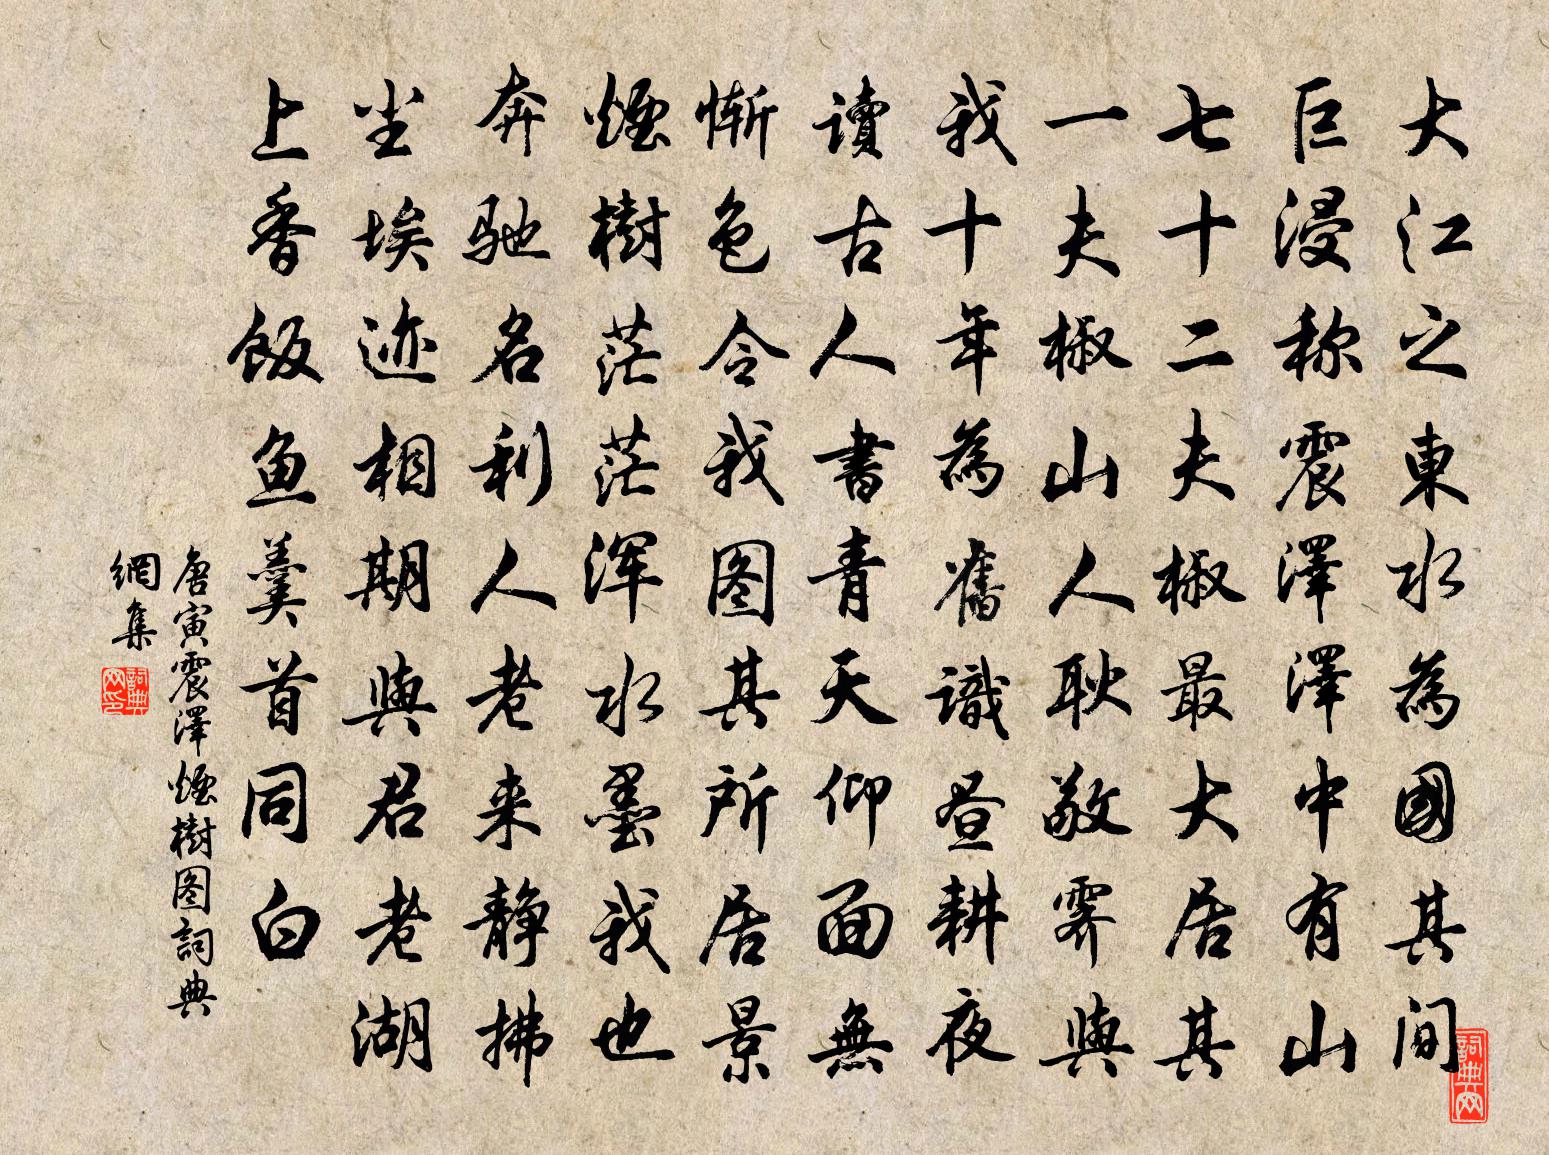 大江之東水為國其间
巨浸称震澤澤中有山
七十二夫椒最大居其
一夫椒山人耿敬霁與
我十年為舊識昼耕夜
讀古人書青天仰面無
惭色令我图其所居景
煙樹茫茫浑水墨我也
奔驰名利人老来静拂
尘埃迹相期與君老湖
上香饭鱼羹首同白
唐寅震澤煙樹图詞典
網集
詞典网
詞典网印